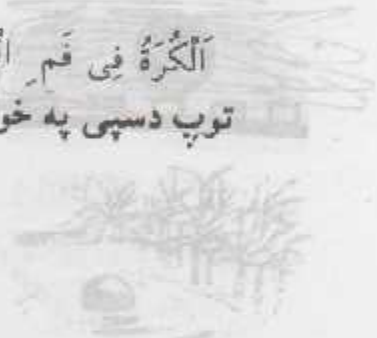 اَلْكُرَةُ فِى فَمِ
توپ دسپی په